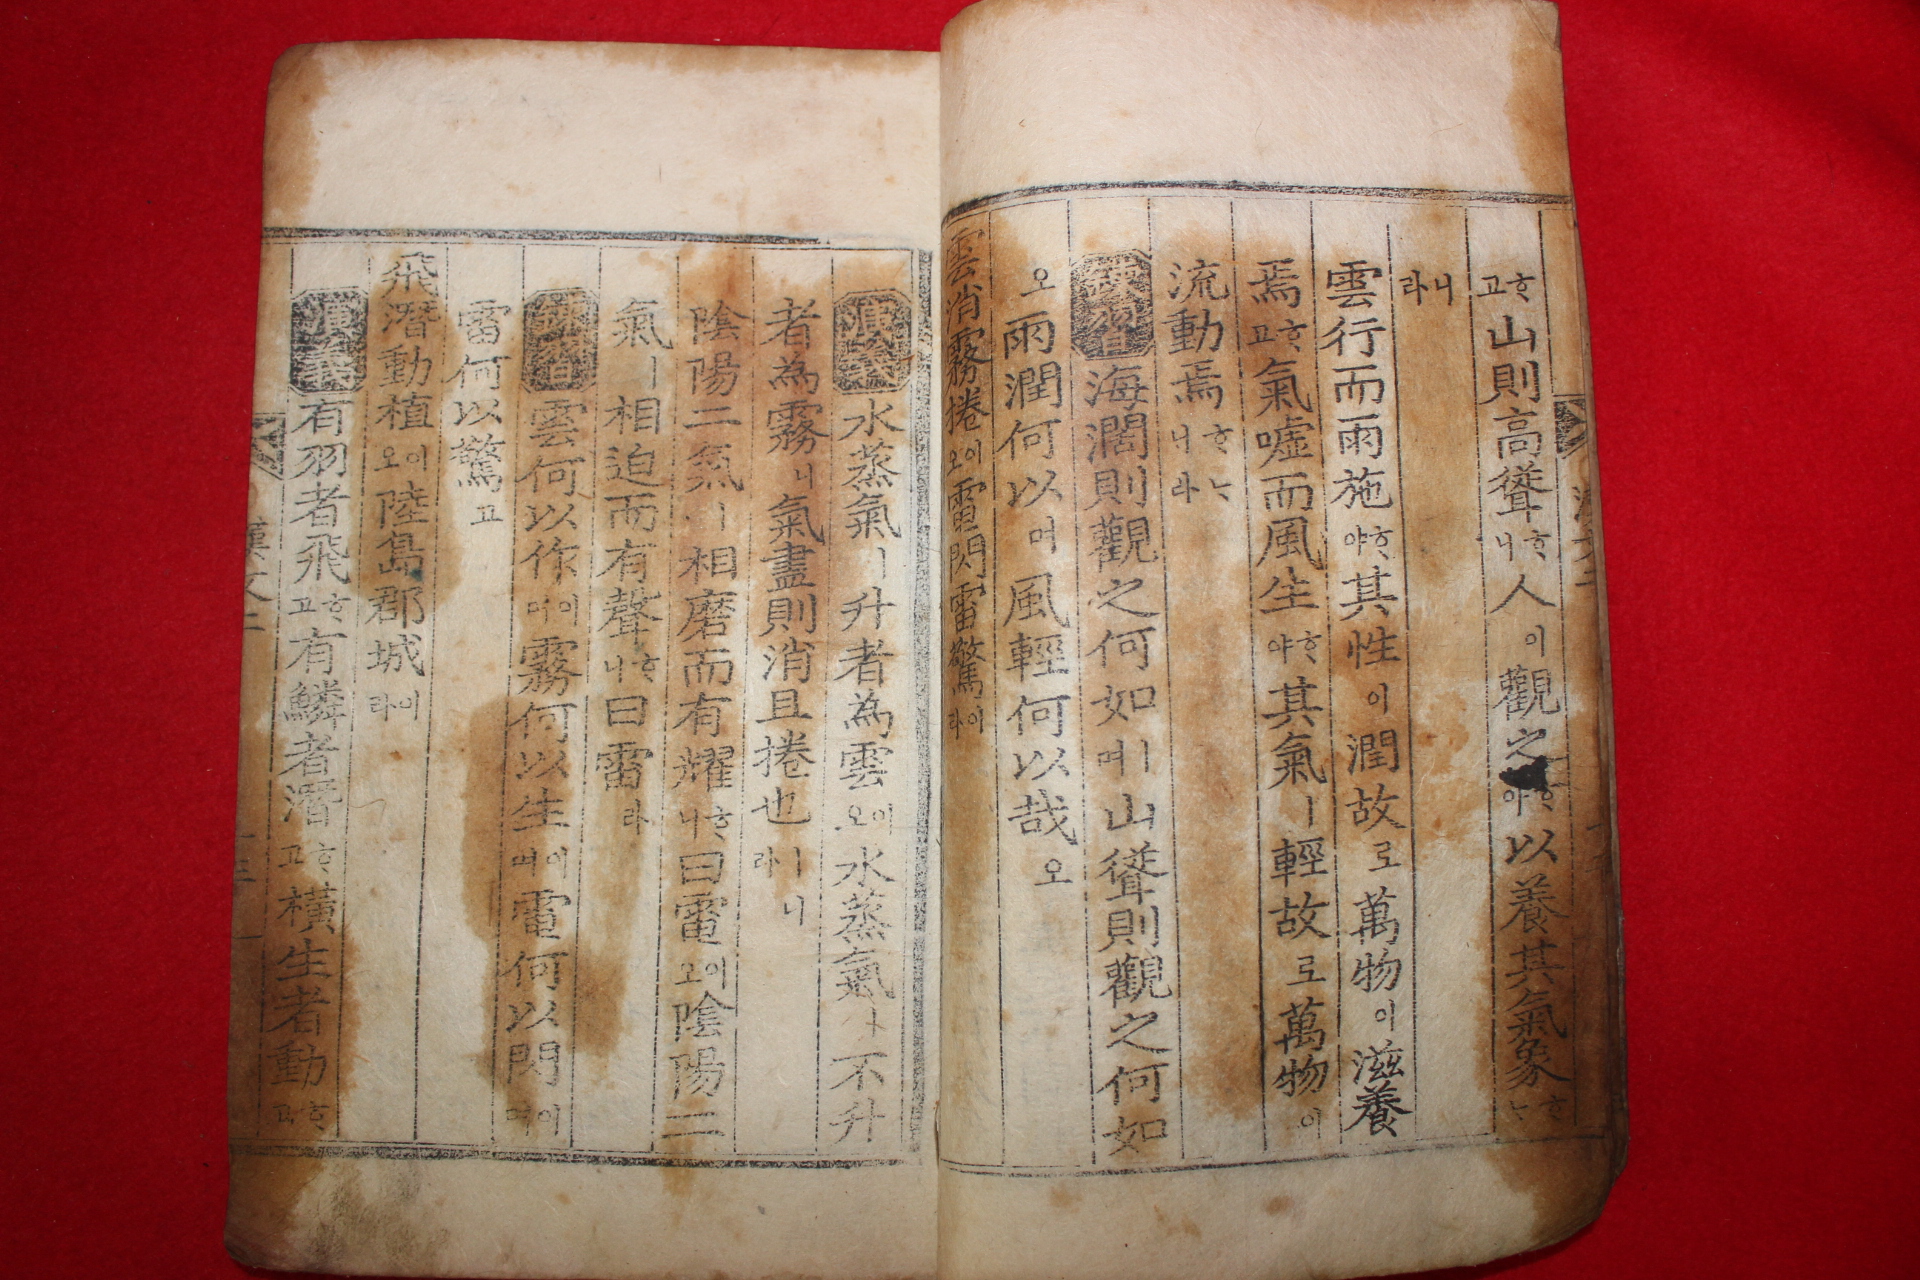 ᄒᆞ고山則高聳ᄒᆞ니人이觀之ᄒᆞ야以養其氣象ᄒᆞᄂ
니라
雲行而雨施ᄒᆞ야其性이潤故로萬物이滋養
焉ᄒᆞ고氣噓而風生ᄒᆞ야其氣ㅣ輕故로萬物이
流動焉ᄒᆞᄂ니라
海濶則觀之何如며ㅣ山聳則觀之何如
오雨潤何以며風輕何以哉오
雲消霧捲이오電閃雷驚이라
演義水蒸氣ㅣ升者為雲이오水蒸氣不升
者為霧니氣盡則消且捲也ㅣ니라
陰陽二氣ㅣ相磨而有耀ᄒᆞ니曰電이오陰陽二
氣ㅣ相迫而有聲ᄒᆞ니曰雷라
雲何以作이며霧何以生이며電何以閃이며
雷何以驚고
飛潛動植이오陸島郡城이라
演義有羽者飛ᄒᆞ고有鱗者潛ᄒᆞ고橫生者動ᄒᆞ고
漢文二